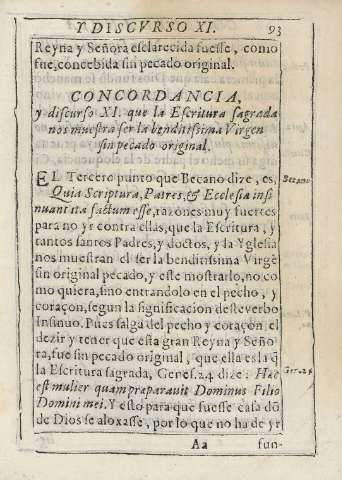 Y DISCVRSO XI. 93
Reyna y Señora esclarecida fuesse, como
fue, concebida sin pecado original.
CONCORDANCIA,
y discurso XI. que la Escritura sagrada
nos muestra ser la benditissima Virgen
sin pecado original.
EL Tercero punto que Becano dize, es, Becano
Quia Scriptura, Patres, & Ecclesia insi
nuant ita factum esse, razones muy fuertes
para no yr contra ellas, que la Escritura, y
tantos santos Padres, y doctos, y la Yglesia
nos muestran el ser la benditissima Virgẽ
sin original pecado, y este mostrarlo, no co
mo quiera, sino entrandolo en el pecho, y
coraçon, segun la significacion deste verbo
Insinuo. Pues salga del pecho y coraçon el
dezir y tener que esta gran Reyna y Seño
ra, fue sin pecado original, que ella es la q̃
la Escritura sagrada, Genes. 24 dize: Hæc Gen. 24
est mulier quam præparauit Dominus Filio
Domini mei. Y esto para que fuesse casa dõ
de Dios se aloxasse, por lo que no ha de yr
Aa fun-